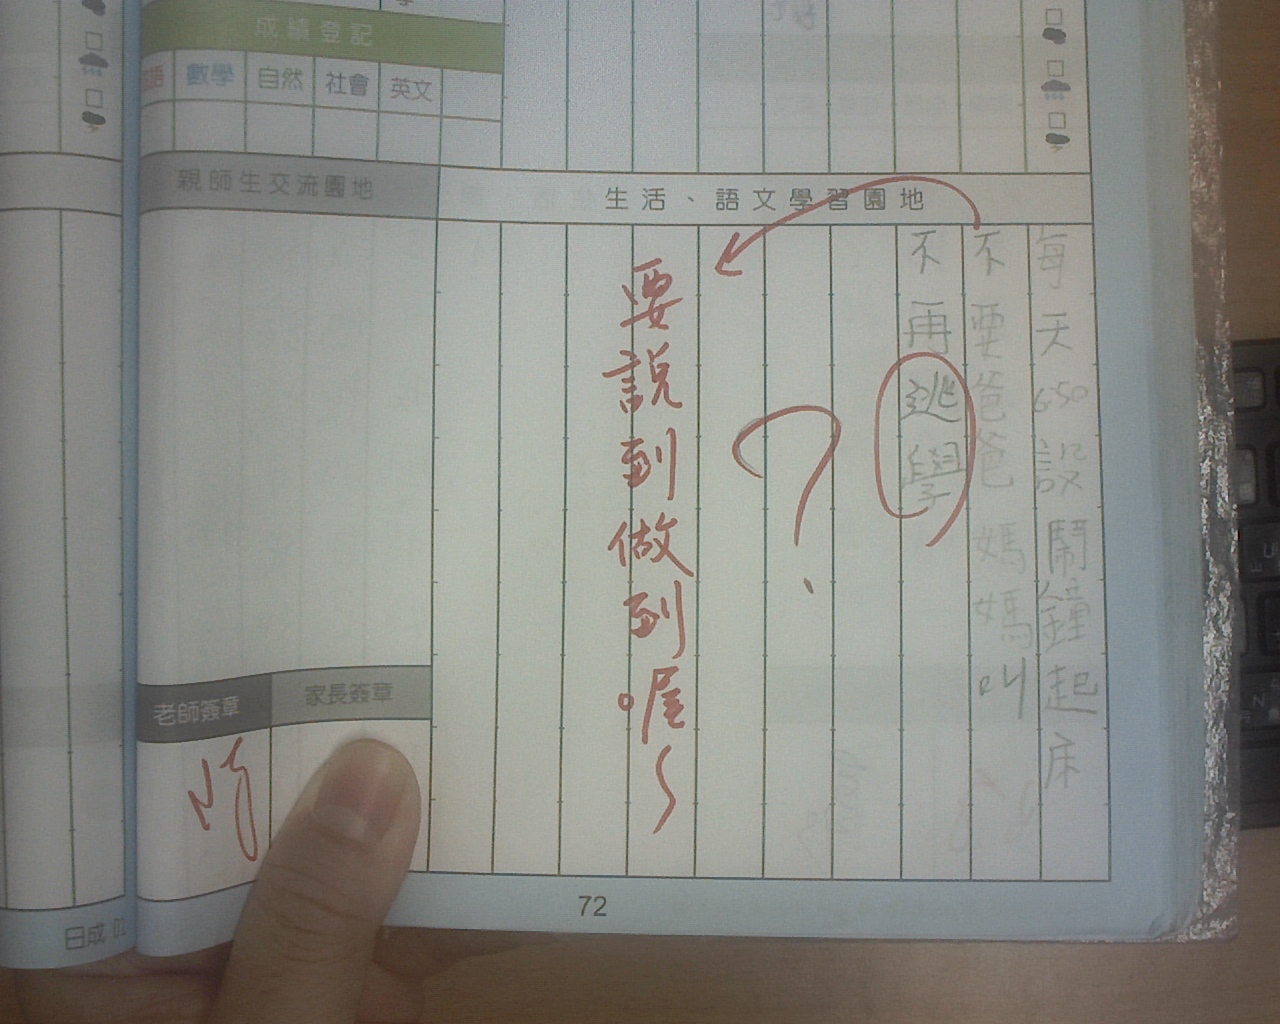 成績登記
國語 數學 自然 社會 英文
親師生交流園地
生活、語文學習園地
每天6:50設鬧鐘起床
不要爸爸媽媽叫
不再逃學
?
要說到做到喔~
老師簽章
家長簽章
72
日成